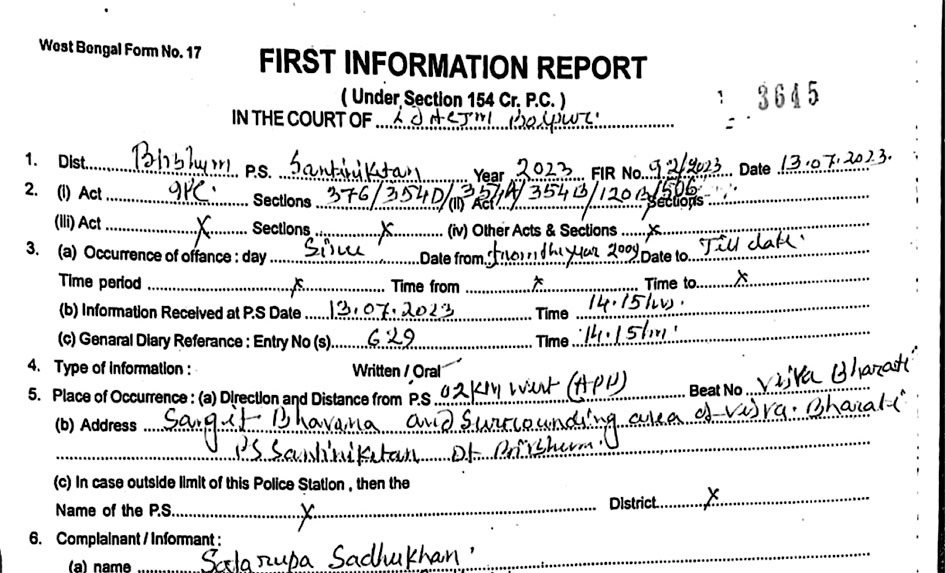 West Bengal Form No. 17
FIRST INFORMATION REPORT
( Under Section 154 Cr. P.C. )
3645
IN THE COURT OF Ld ACJM Bolpur
1. Dist. Birbhum P.S. Santiniketan Year 2023 FIR No. 92/2023 Date 13.07.2023.
2. (i) Act IPC Sections 376/354D/354A/354B/120B/506 (ii) Act Sections
(iii) Act x Sections x (iv) Other Acts & Sections x
3. (a) Occurrence of offance : day Since Date from from the year 2009 Date to Till date
Time period x Time from x Time to x
(b) Information Received at P.S Date 13.07.2023 Time 14.15 hrs.
(c) Genaral Diary Referance : Entry No (s) 629 Time 14.15 hrs
4. Type of information : Written / Oral
5. Place of Occurrence : (a) Direction and Distance from P.S 02 KM West (APP) Beat No Visva Bharati
(b) Address Sangit Bhavana and Surrounding area of Visva-Bharati
PS Santiniketan Dt Birbhum
(c) In case outside limit of this Police Station , then the
Name of the P.S. x District x
6. Complainant / Informant :
(a) name Satarupa Sadhukhan